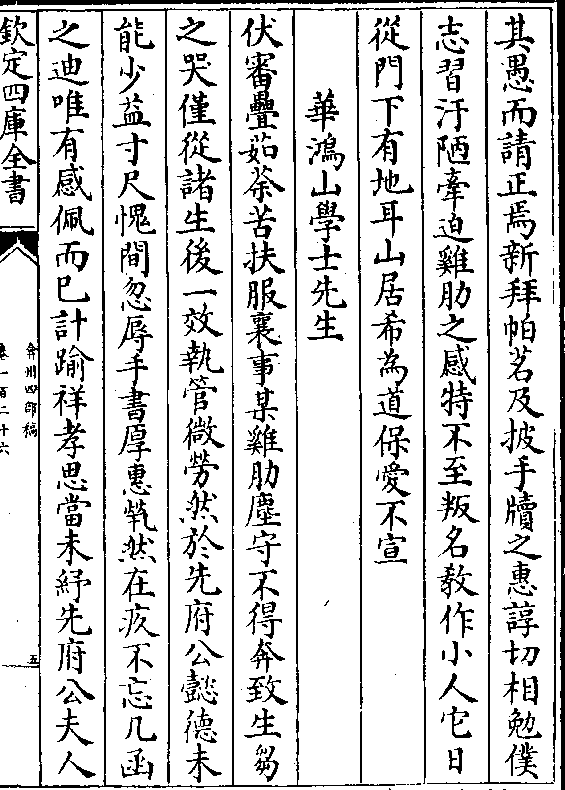 其愚而請正焉新拜帕茗及披手牘之惠諄切相勉僕
志習汙陋牽迫雞肋之感特不至叛名教作小人它日
從門下有地耳山居希為道保愛不宣
華鴻山學士先生
伏審疊茹荼苦扶服襄事某雞肋塵守不得奔致生芻
之哭僅從諸生後一效執管微勞然於先府公懿德未
能少益寸尺愧間忽辱手書厚惠煢然在疚不忘几函
之迪唯有感佩而已計踰祥孝思當未紓先府公夫人
欽定四庫全書
弇州四部稿
卷一百二十六
五